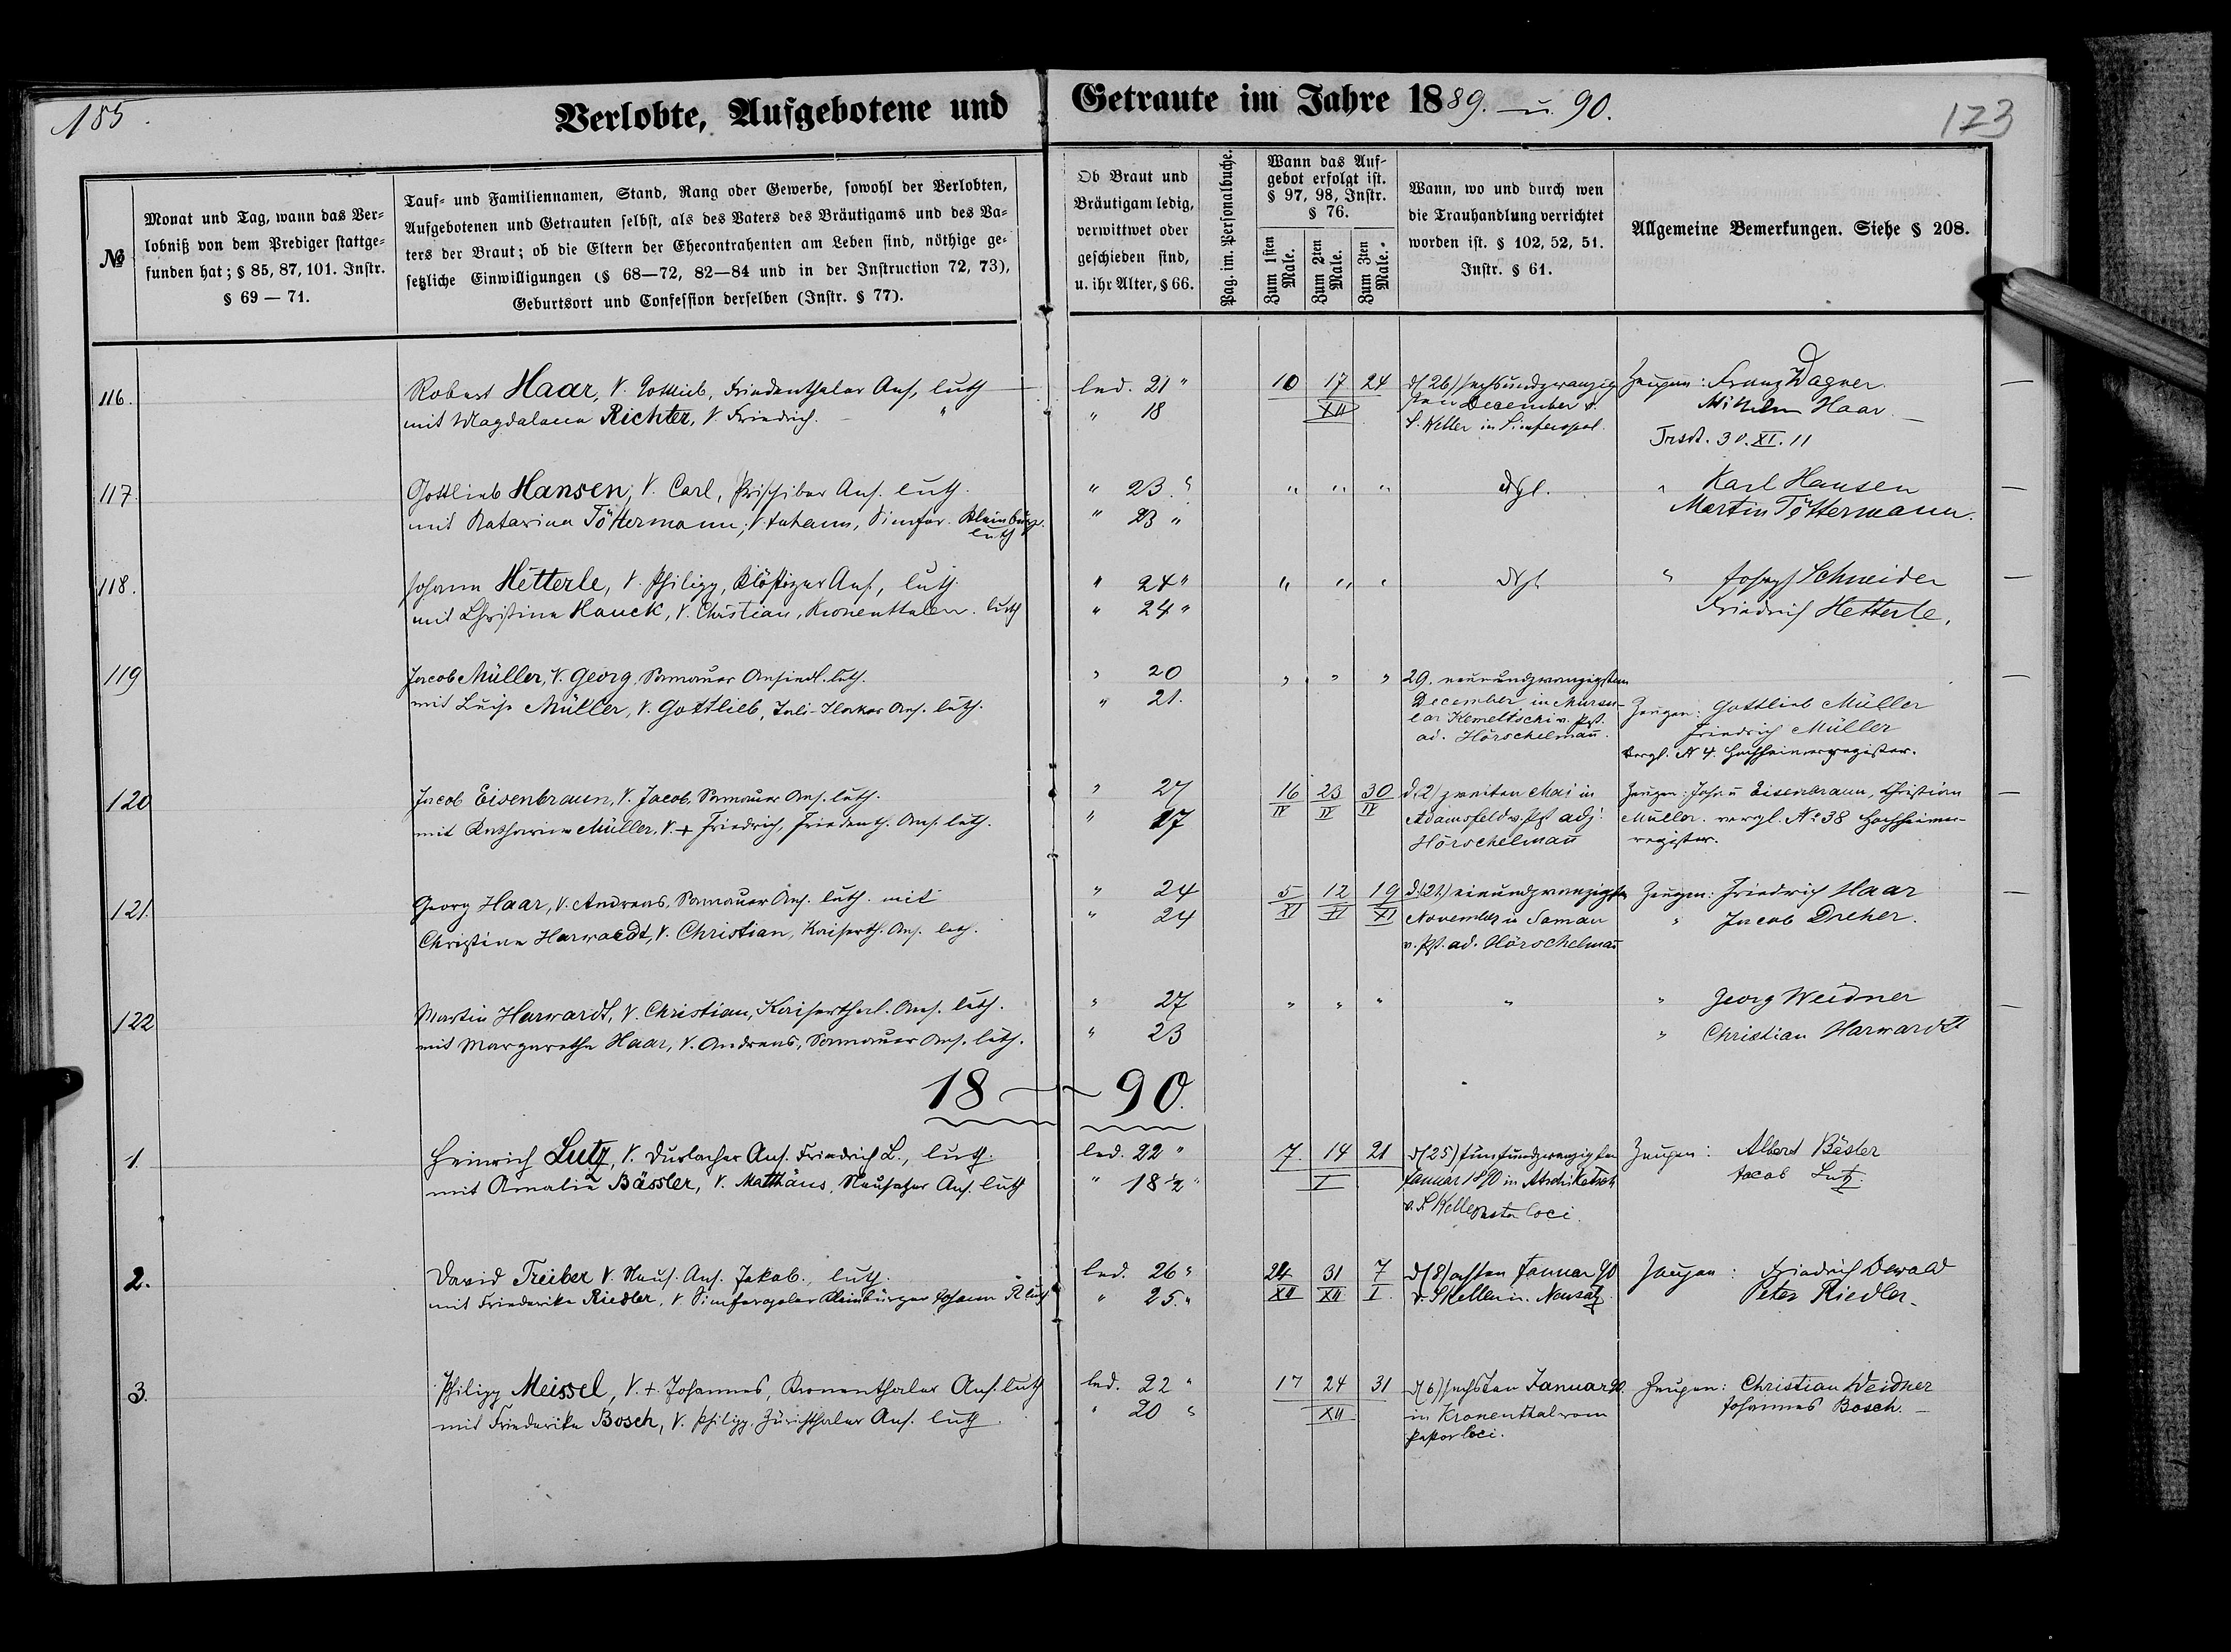 185.
Verlobte, Aufgebotene und Getraute im Jahre 1889. u. 90.
173
№
Monat und Tag, wann das Ver-
lobniß von dem Prediger stattge-
funden hat; § 85, 87, 101. Instr.
§ 69 — 71.
Tauf- und Familiennamen, Stand, Rang oder Gewerbe, sowohl der Verlobten,
Aufgebotenen und Getrauten selbst, als des Vaters des Bräutigams und des Va-
ters der Braut; ob die Eltern der Ehecontrahenten am Leben sind, nöthige ge-
setzliche Einwilligungen (§ 68—72, 82—84 und in der Instruction 72, 73),
Geburtsort und Confession derselben (Instr. § 77).
Ob Braut und
Bräutigam ledig,
verwittwet oder
geschieden sind,
u. ihr Alter, § 66.
Pag. im. Personalbuche.
Wann das Auf-
gebot erfolgt ist.
§ 97, 98, Instr.
§ 76.
Zum 1sten Male.
Zum 2ten Male.
Zum 3ten Male.
Wann, wo und durch wen
die Trauhandlung verrichtet
worden ist. § 102, 52, 51.
Instr. § 61.
Allgemeine Bemerkungen. Siehe § 208.
116. Robert Haar, V. Gottlieb, Friedenthaler Ans, luth led. 21 " 10 17 24 d (26) sechsundzwanzig Zeugen: Franz Wagner
mit Magdalena Richter, V. Friedrich. " " 18 XII sten December v. Wilhelm Haar
S. Keller in Simferopol. Trsdt. 30. XI. 11
117. Gottlieb Hansen, V. Carl, Prischiber Ans. luth. " 23 " " " " dgl. " Karl Hansen
mit Katarina Töttermann, V. Johann, Simfer. Kleinbürger " 23 " Martin Töttermann.
luth
118. Johann Hetterle, V. Philipp, Ans, luth. " 24 " " " " dgl " Joseph Schneider
mit Christina Hauck, V. Christian, Kronenthaler. luth " 24 " Friedrich Hetterle.
119 Jacob Müller, V. Georg, Samauer Ansiedl. luth. " 20 " " " 29. neunundzwanzigsten
mit Luise Müller, V. Gottlieb, Ans. luth. " 21. December in Zeugen: Gottlieb Müller
Kemeltschi v. Pst. Friedrich Müller
ad. Hörschelmañ. Vergl. № 4. Hochheimerregister.
120 Jacob Eisenbraun, V. Jacob, Samauer Ans. luth. " 27 16/IV 23/IV 30/IV d. (2) zweiten Mai in Zeugen: Johañ Eisenbraun, Christian
mit Katharina Müller, V. + Friedrich, Friedenth. Ans. luth. " 17 Adamsfeld v. Pst adj. Müller. vergl. № 38 Hochheimer-
Hörschelmañ register.
121. Georg Haar, V. Andreas, Samauer Ans. luth. mit " 24 5/XI 12/XI 19/XI d. (21.) einundzwanzigsten Zeugen: Friedrich Haar
Christine Harwardt, V. Christian, Kaiserth. Ans. luth. " 24 November in Samau " Jacob Dreher.
v. Pst. ad. Hörschelmañ
122 Martin Harwardt, V. Christian, Kaiserthal. Ans. luth. " 27 " " " " " Georg Weidner
mit Margaretha Haar, V. Andreas, Samauer Ans. luth. " 23 " Christian Harwardt
18 — 90.
1. Heinrich Lutz, V. Durlacher Ans. Friedrich L., luth. led. 22 " 7 14 21 d (25) fünfundzwanzigsten Zeugen: Albert Bäsler
mit Amalie Bässler, V. Matthäus, Neusatzer Ans. luth " 18 1/2 " I Januar 1890 in Jacob Lutz.
v. S Keller Pastor loci.
2. David Treiber V. Neus. Ans. Jakob., luth. led. 26 " 24/XII 31/XII 7/I d (8) achten Januar 90 Zeugen: Friedrich Dewald
mit Friederike Riedler, V. Simferopoler Kleinbürger Johann R. luth " 25. " v. S Keller in. Neusatz. Peter Riedler.
3. Philipp Meissel, V. +. Johannes, Kronenthaler Ans. luth led. 22 " 17 24 31 d (6) sechsten Januar 90. Zeugen: Christian Weidner
mit Friederike Bosch, V. Philipp, Zürichthaler Ans. luth. " 20 " XII in Kronenthal vom Johannes Bosch.
Pastor loci.